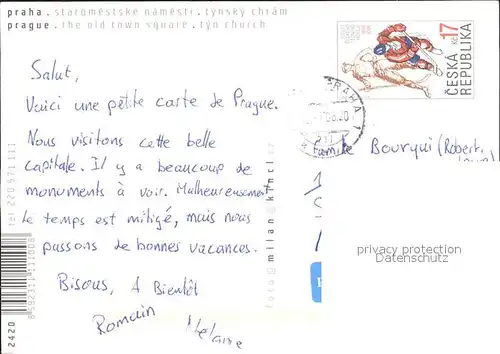 praha. staroměstské náměstí. týnský chrám
prague. the old town square. týn church
Salut,
Voici une pétite carte de Prague.
Nous visitons cette belle
capitale. Il y a beaucoup de
monuments à voir. Malheureusement
le temps est mitigé, mais nous
passons de bonnes vacances.
Bisous, A Bientôt
Romain
Mélanie
tel 220 571 111
8592311111008
2420
foto@milan@kincl.cz
17
Kč
ČESKÁ
REPUBLIKA
PRAHA 1
Famille Bourqui (Robert,
privacy protection
Datenschutz